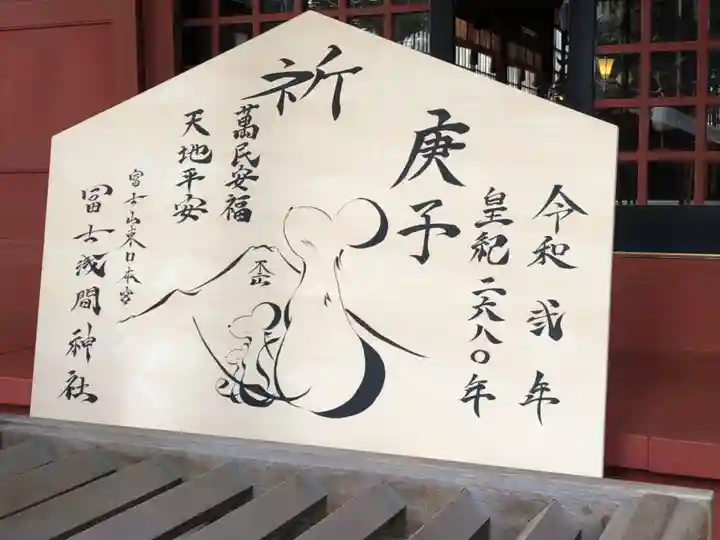 令和弐年
皇紀二六八〇年
庚子
祈
萬民安福
天地平安
冨士山東口本宮
冨士浅間神社
不二山